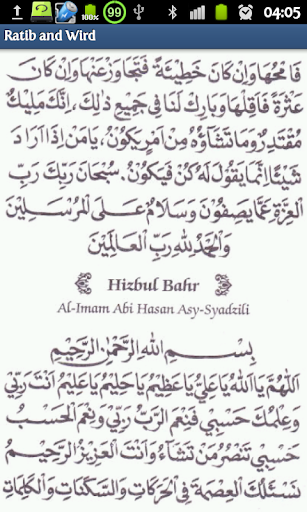 100%
99
04:05
Ratib and Wird
فَامْحُهَا وَاِنْ كَانَ خَطِيْئَةً فَتَجَاوَزْعَنْهَا وَاِنْ كَانَ
عَثْرَةً فَاَقِلْهَا وَبَارِكْ لَنَا فِيْ جَمِيْعِ ذٰلِكَ، اِنَّكَ مَلِيْكٌ
مُقْتَدِرٌ وَمَا تَشَآؤُهُ مِنْ اَمْرٍ يَكُوْنُ، يَامَنْ اِذَا اَرَادَ
شَيْئًا اِنَّمَا يَقُوْلُ لَهُ كُنْ فَيَكُوْنُ. سُبْحَانَ رَبِّكَ رَبِّ
الْعِزَّةِ عَمَّا يَصِفُوْنَ وَسَلَامٌ عَلَى الْمُرْسَلِيْنَ
وَالْحَمْدُ لِلّٰهِ رَبِّ الْعَالَمِيْنَ
Hizbul Bahr
Al-Imam Abi Hasan Asy-Syadzili
بِسْمِ اللهِ الرَّحْمٰنِ الرَّحِيْمِ
اَللّٰهُمَّ يَا اَللهُ يَاعَلِيُّ يَاعَظِيْمُ يَاحَلِيْمُ يَاعَلِيْمُ اَنْتَ رَبِّيْ
وَعِلْمُكَ حَسْبِيْ فَنِعْمَ الرَّبُّ رَبِّيْ وَنِعْمَ الْحَسْبُ
حَسْبِيْ تَنْصُرُ مَنْ تَشَآءُ وَاَنْتَ الْعَزِيْزُ الرَّحِيْمُ
نَسْئَلُكَ الْعِصْمَةَ فِى الْحَرَكَاتِ وَالسَّكَنَاتِ وَالْكَلِمَاتِ